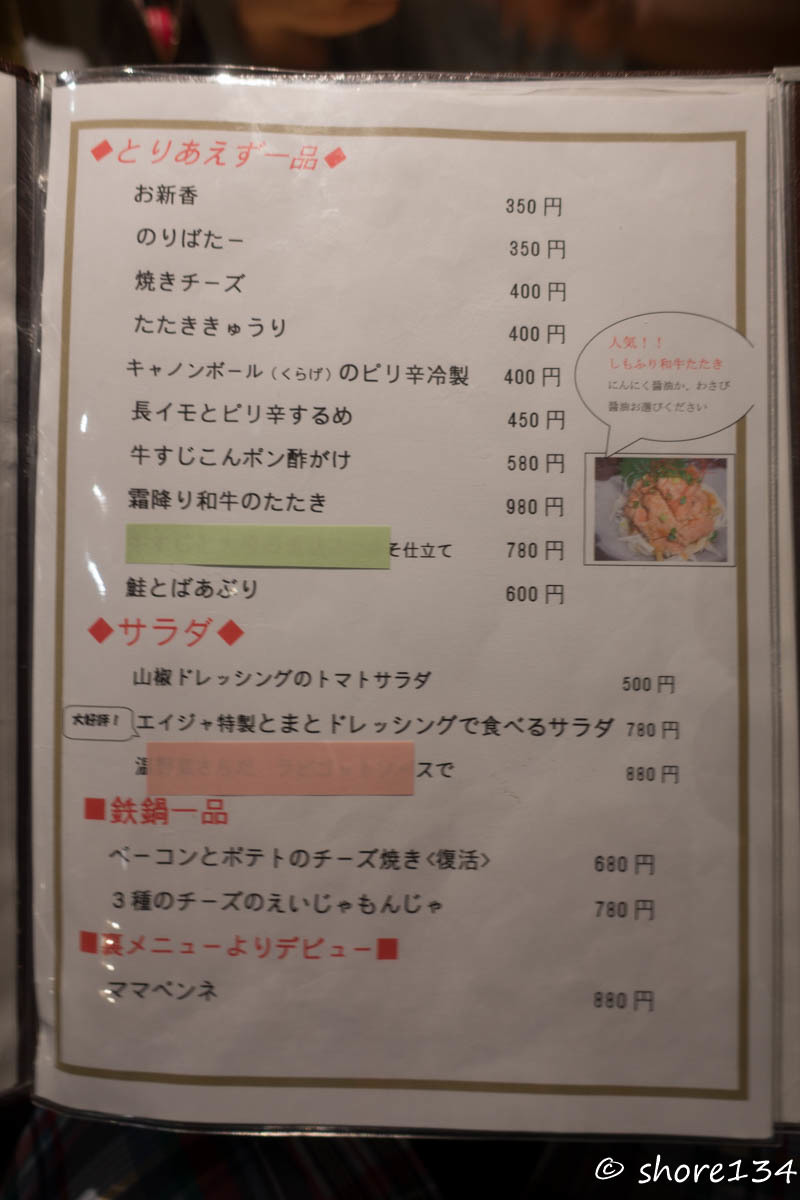 ◆とりあえず一品◆
お新香 350円
のりばたー 350円
焼きチーズ 400円
たたききゅうり 400円
キャノンボール（くらげ）のピリ辛冷製 400円
人気！！
しもふり和牛たたき
にんにく醤油か、わさび
醤油お選びください
長イモとピリ辛するめ 450円
牛すじこんポン酢がけ 580円
霜降り和牛のたたき 980円
そ仕立て 780円
鮭とばあぶり 600円
◆サラダ◆
山椒ドレッシングのトマトサラダ 500円
大好評！
エイジャ特製とまとドレッシングで食べるサラダ 780円
温野菜さらだ、ラビゴットソースで 880円
■鉄鍋一品
ベーコンとポテトのチーズ焼き<復活> 680円
３種のチーズのえいじゃもんじゃ 780円
■裏メニューよりデビュー■
ママペンネ 880円
© shore134